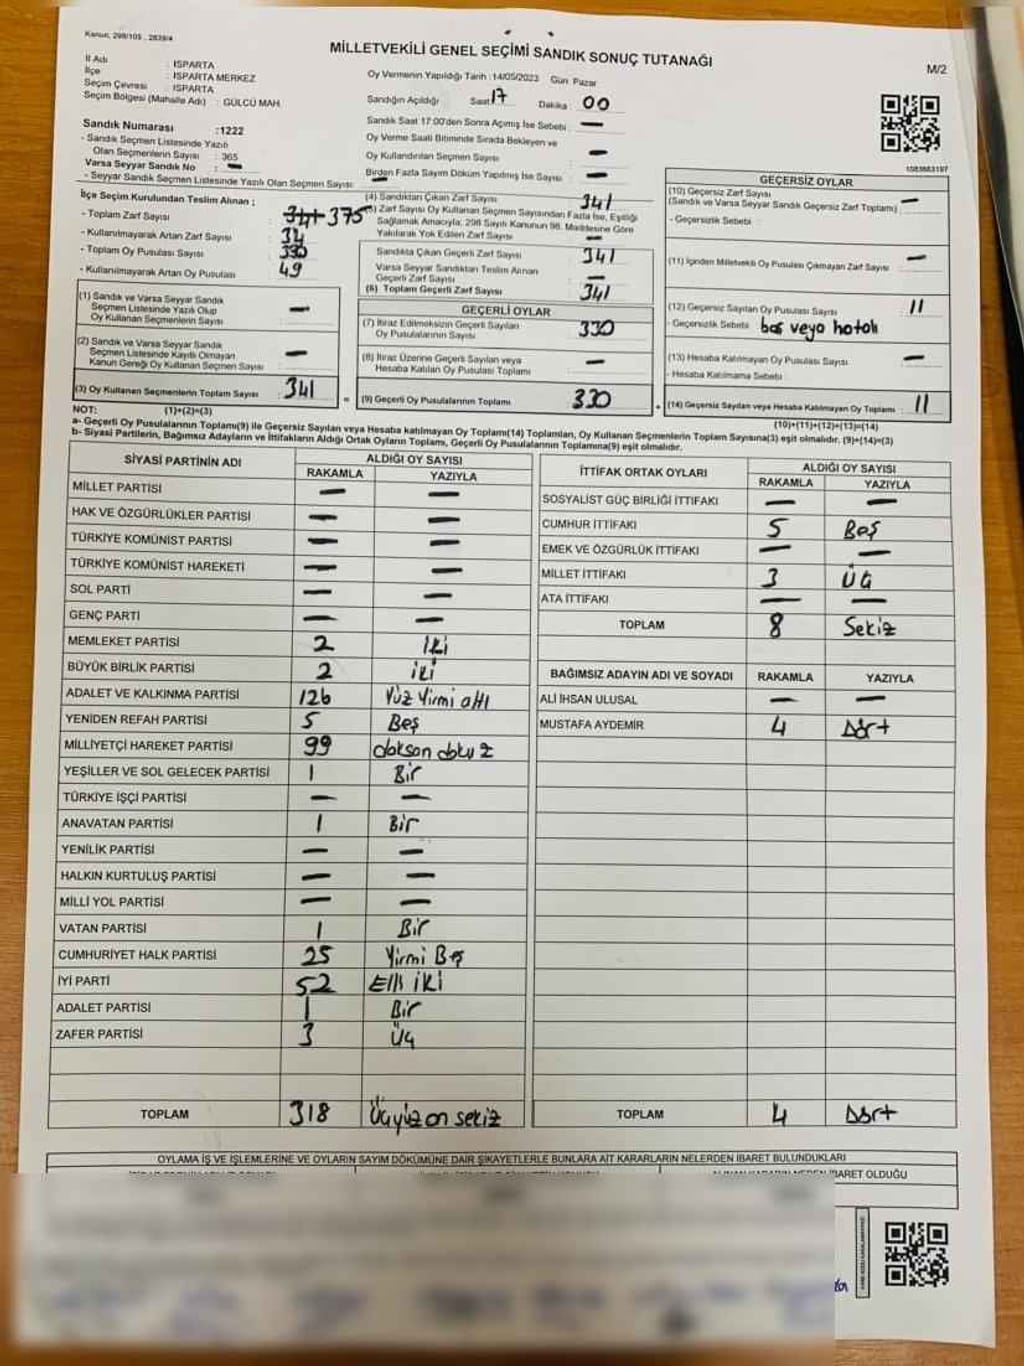 Kanun; 298/105 , 2839/4
MİLLETVEKİLİ GENEL SEÇİMİ SANDIK SONUÇ TUTANAĞI
M/2
İl Adı : ISPARTA
İlçe : ISPARTA MERKEZ
Seçim Çevresi : ISPARTA
Seçim Bölgesi (Mahalle Adı) : GÜLCÜ MAH.
Sandık Numarası :1222
- Sandık Seçmen Listesinde Yazılı
Olan Seçmenlerin Sayısı : 365
Varsa Seyyar Sandık No : —
- Seyyar Sandık Seçmen Listesinde Yazılı Olan Seçmen Sayısı : —
Oy Vermenin Yapıldığı Tarih :14/05/2023 Gün: Pazar
Sandığın Açıldığı Saat: 17 Dakika : 00
Sandık Saat 17:00'den Sonra Açımış İse Sebebi : —
Oy Verme Saati Bitiminde Sırada Bekleyen ve
Oy Kullandırılan Seçmen Sayısı : —
Birden Fazla Sayım Döküm Yapılmış İse Sayısı : —
1583683197
İlçe Seçim Kurulundan Teslim Alınan ;
- Toplam Zarf Sayısı : 375
- Kullanılmayarak Artan Zarf Sayısı : 34
- Toplam Oy Pusulası Sayısı :
- Kullanılmayarak Artan Oy Pusulası : 49
(1) Sandık ve Varsa Seyyar Sandık
Seçmen Listesinde Yazılı Olup
Oy Kullanan Seçmenlerin Sayısı : —
(2) Sandık ve Varsa Seyyar Sandık
Seçmen Listesinde Kayıtlı Olmayan
Kanun Gereği Oy Kullanan Seçmen Sayısı : —
(3) Oy Kullanan Seçmenlerin Toplam Sayısı : 341
(4) Sandıktan Çıkan Zarf Sayısı : 341
(5) Zarf Sayısı Oy Kullanan Seçmen Sayısından Fazla İse, Eşitliği
Sağlamak Amacıyla; 298 Sayılı Kanunun 98. Maddesine Göre
Yakılarak Yok Edilen Zarf Sayısı : —
Sandıkta Çıkan Geçerli Zarf Sayısı : 341
Varsa Seyyar Sandıktan Teslim Alınan
Geçerli Zarf Sayısı : —
(6) Toplam Geçerli Zarf Sayısı : 341
GEÇERLİ OYLAR
(7) İtiraz Edilmeksizin Geçerli Sayılan
Oy Pusulalarının Sayısı : 330
(8) İtiraz Üzerine Geçerli Sayılan veya
Hesaba Katılan Oy Pusulası Toplamı : —
(9) Geçerli Oy Pusulalarının Toplamı : 330
GEÇERSİZ OYLAR
(10) Geçersiz Zarf Sayısı
(Sandık ve Varsa Seyyar Sandık Geçersiz Zarf Toplamı) : —
- Geçersizlik Sebebi :
(11) İçinden Milletvekili Oy Pusulası Çıkmayan Zarf Sayısı : —
(12) Geçersiz Sayılan Oy Pusulası Sayısı : 11
- Geçersizlik Sebebi : boş veya hatalı
(13) Hesaba Katılmayan Oy Pusulası Sayısı : —
- Hesaba Katılmama Sebebi :
(14) Geçersiz Sayılan veya Hesaba Katılmayan Oy Toplamı : 11
NOT: (1)+(2)=(3)
(10)+(11)+(12)+(13)=(14)
a- Geçerli Oy Pusulalarının Toplamı(9) ile Geçersiz Sayılan veya Hesaba katılmayan Oy Toplamı(14) Toplamları, Oy Kullanan Seçmenlerin Toplam Sayısına(3) eşit olmalıdır. (9)+(14)=(3)
b- Siyasi Partilerin, Bağımsız Adayların ve İttifakların Aldığı Ortak Oyların Toplamı, Geçerli Oy Pusulalarının Toplamına(9) eşit olmalıdır.
SİYASİ PARTİNİN ADI ALDIĞI OY SAYISI
RAKAMLA YAZIYLA
MİLLET PARTİSİ — —
HAK VE ÖZGÜRLÜKLER PARTİSİ — —
TÜRKİYE KOMÜNİST PARTİSİ — —
TÜRKİYE KOMÜNİST HAREKETİ — —
SOL PARTİ — —
GENÇ PARTİ — —
MEMLEKET PARTİSİ 2 İki
BÜYÜK BİRLİK PARTİSİ 2 iki
ADALET VE KALKINMA PARTİSİ 126 Yüz Yirmi altı
YENİDEN REFAH PARTİSİ 5 Beş
MİLLİYETÇİ HAREKET PARTİSİ 99 doksan dokuz
YEŞİLLER VE SOL GELECEK PARTİSİ 1 Bir
TÜRKİYE İŞÇİ PARTİSİ — —
ANAVATAN PARTİSİ 1 Bir
YENİLİK PARTİSİ — —
HALKIN KURTULUŞ PARTİSİ — —
MİLLİ YOL PARTİSİ — —
VATAN PARTİSİ 1 Bir
CUMHURİYET HALK PARTİSİ 25 Yirmi Beş
İYİ PARTİ 52 Elli iki
ADALET PARTİSİ 1 Bir
ZAFER PARTİSİ 3 Üç
TOPLAM 318 Üçyüz on sekiz
İTTİFAK ORTAK OYLARI ALDIĞI OY SAYISI
RAKAMLA YAZIYLA
SOSYALİST GÜÇ BİRLİĞİ İTTİFAKI — —
CUMHUR İTTİFAKI 5 Beş
EMEK VE ÖZGÜRLÜK İTTİFAKI — —
MİLLET İTTİFAKI 3 Üç
ATA İTTİFAKI — —
TOPLAM 8 Sekiz
BAĞIMSIZ ADAYIN ADI VE SOYADI RAKAMLA YAZIYLA
ALİ İHSAN ULUSAL — —
MUSTAFA AYDEMİR 4 Dört
TOPLAM 4 Dört
OYLAMA İŞ VE İŞLEMLERİNE VE OYLARIN SAYIM DÖKÜMÜNE DAİR ŞİKAYETLERLE BUNLARA AİT KARARLARIN NELERDEN İBARET BULUNDUKLARI
İBARET OLDUĞU